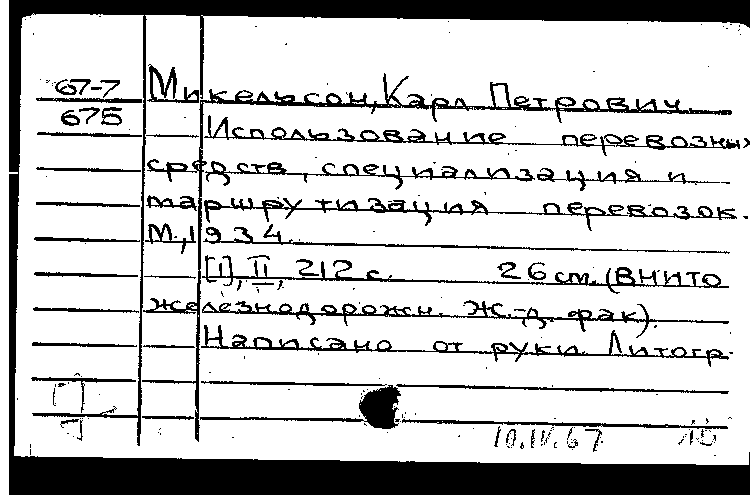 67-7
675
Микельсон, Карл Петрович.
Использование перевозных
средств, специализация и
маршрутизация перевозок.
М., 1934.
[I], II, 212 с. 26 см. (ВНИТО
железнодорожн. Ж.-д. фак).
Написано от руки. Литогр.
10.IV.67